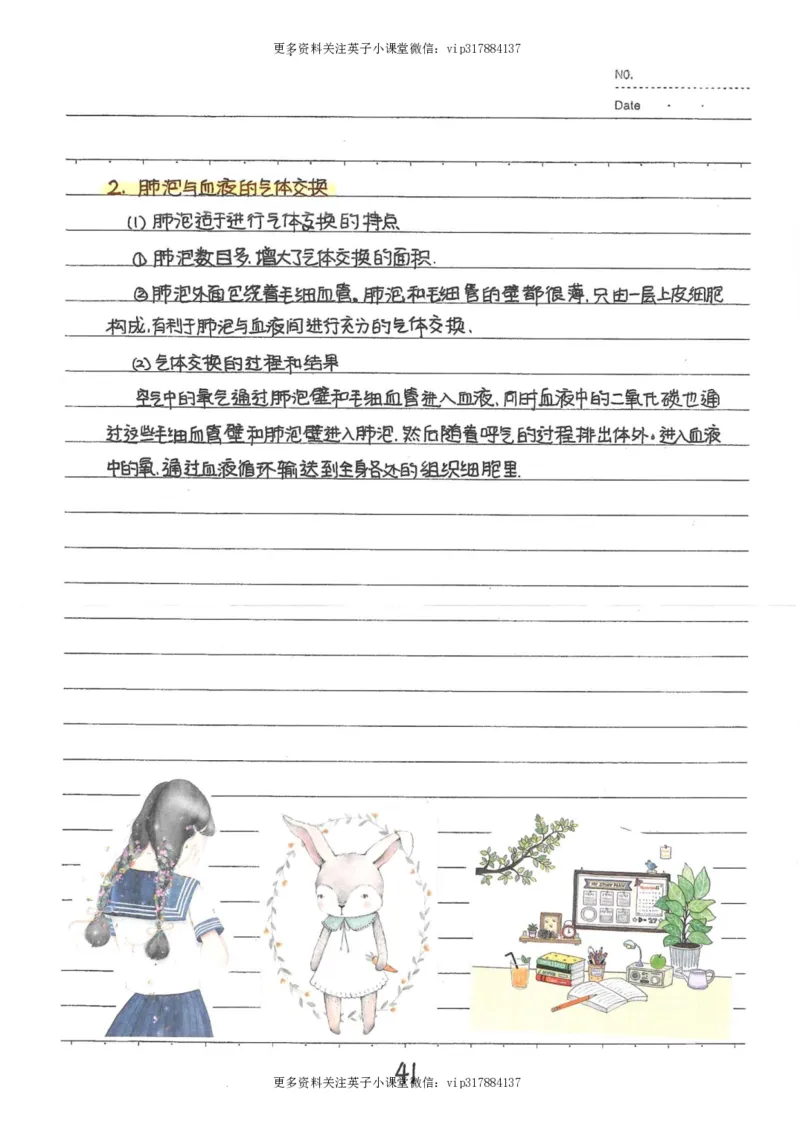 更多资料关注英子小课堂微信：vip317884137
NO.
Date
2. 肺泡与血液的气体交换
(1) 肺泡适于进行气体交换的特点
① 肺泡数目多,增大了气体交换的面积.
②肺泡外面包绕着毛细血管。肺泡和毛细管的壁都很薄,只由一层上皮细胞
构成,有利于肺泡与血液间进行充分的气体交换.
(2) 气体交换的过程和结果
空气中的氧气通过肺泡壁和毛细血管进入血液,同时血液中的二氧化碳也通
过这些毛细血管壁和肺泡壁进入肺泡,然后随着呼气的过程排出体外。进入血液
中的氧,通过血液循环输送到全身各处的组织细胞里.
MY STUDY DIARY
41
更多资料关注英子小课堂微信：vip317884137